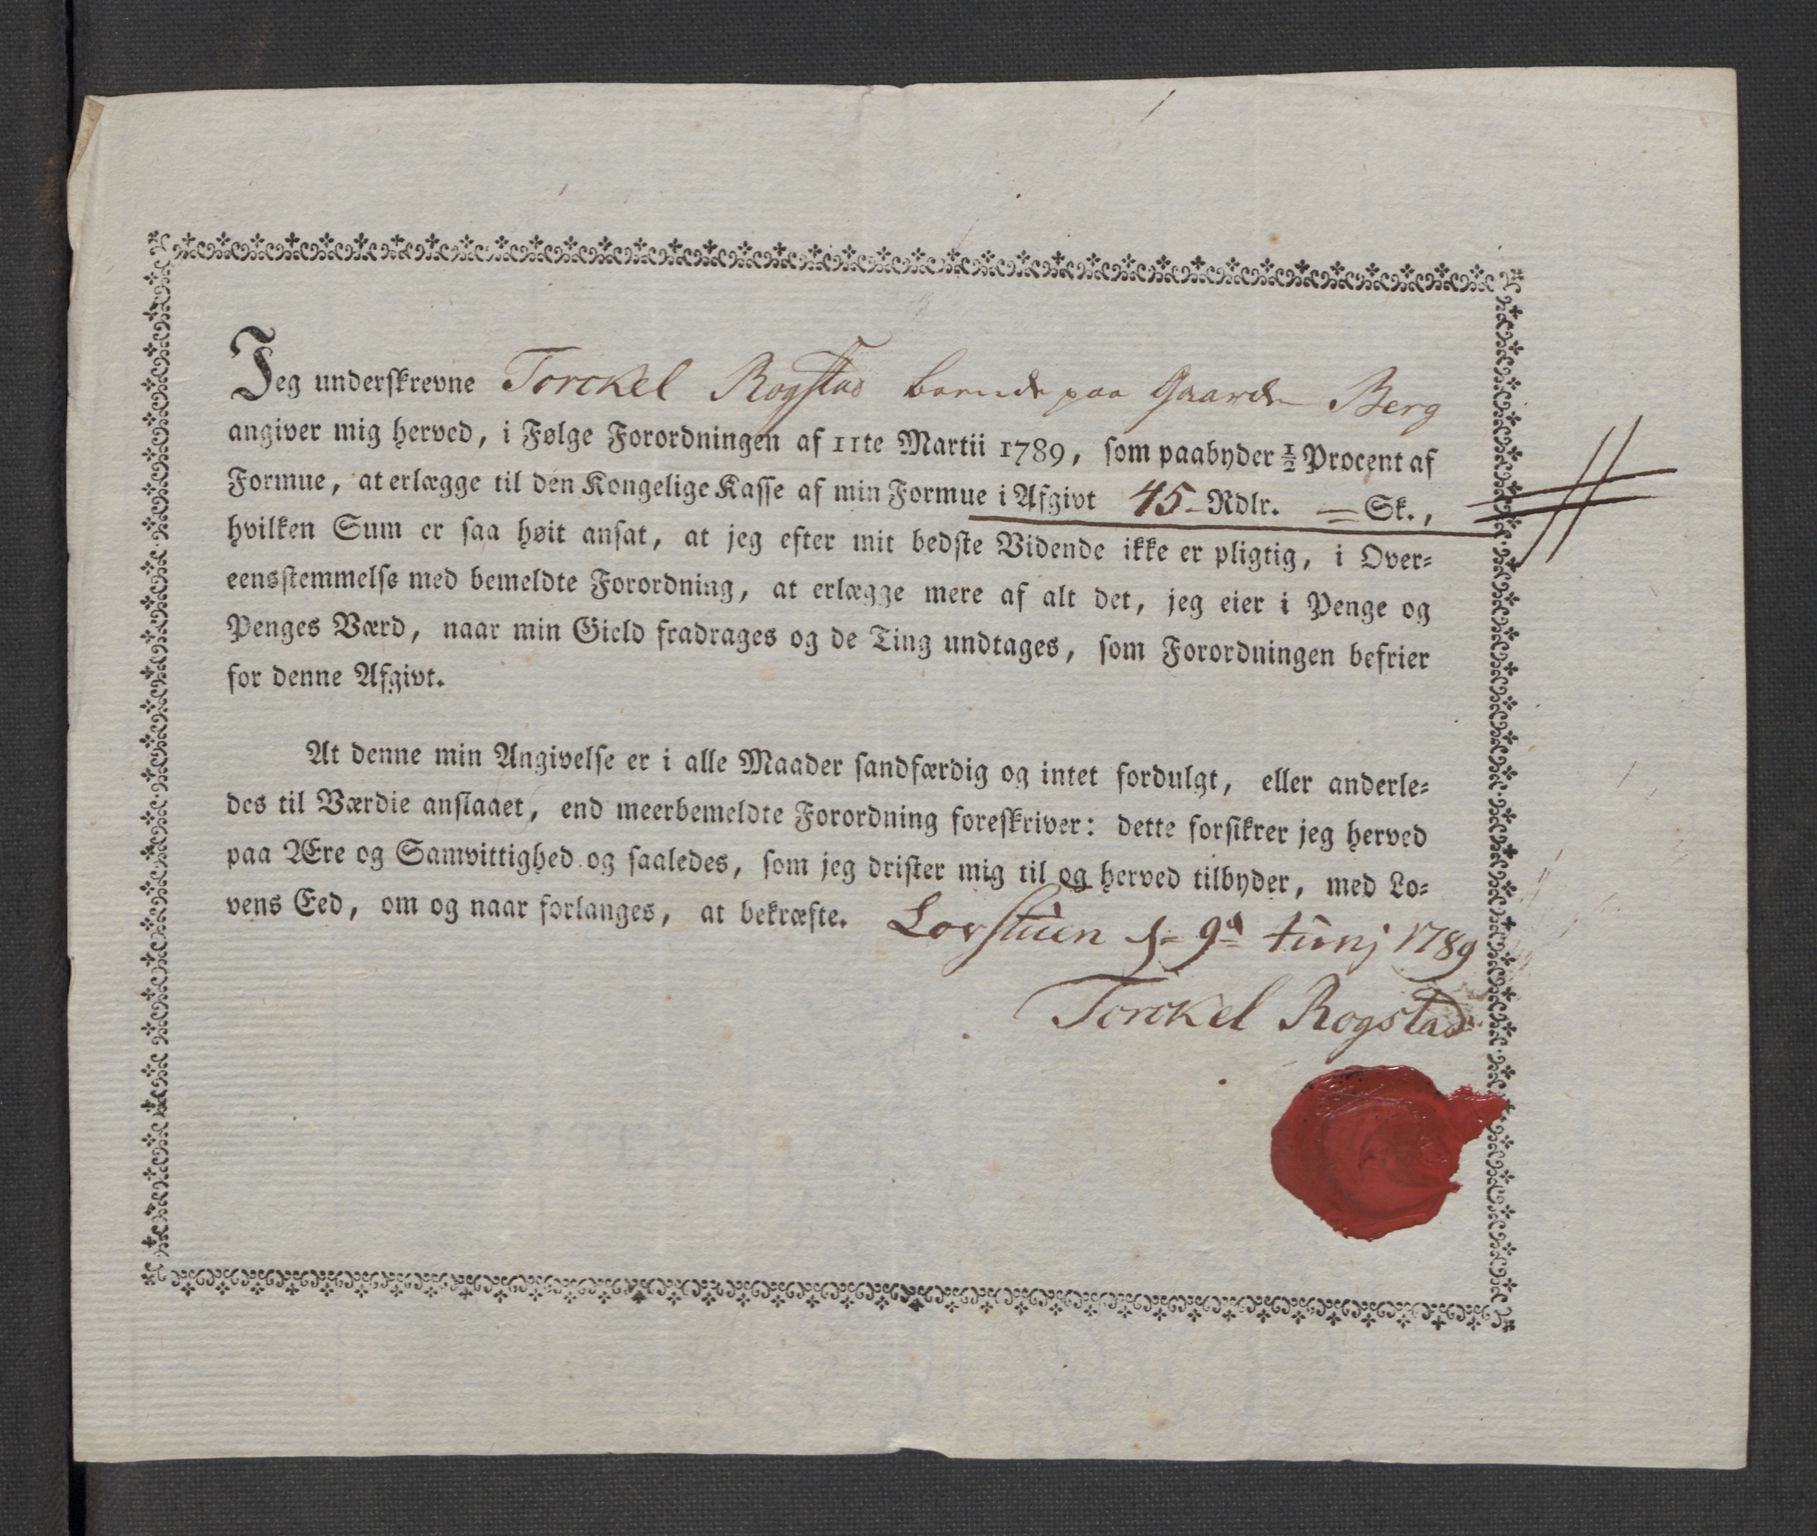 Jeg underskrevne Torckel Rogstad boende paa Gaarden Berg
angiver mig herved, i Følge Forordningen af 11te Martii 1789, som paabyder ½ Procent af
Formue, at erlægge til den Kongelige Kasse af min Formue i Afgivt 45 - Rdlr. = Sk.,
hvilken Sum er saa høit ansat, at jeg efter mit bedste Vidende ikke er pligtig, i Over-
eensstemmelse med bemeldte Forordning, at erlægge mere af alt det, jeg eier i Penge og
Penges Værd, naar min Gield fradrages og de Ting undtages, som Forordningen befrier
for denne Afgivt.
At denne min Angivelse er i alle Maader sandfærdig og intet fordulgt, eller anderle-
des til Værdie anslaaet, end meerbemeldte Forordning foreskriver: dette forsikrer jeg herved
paa Ære og Samvittighed og saaledes, som jeg drister mig til og herved tilbyder, med Lo-
vens Eed, om og naar forlanges, at bekræfte.
Lovstuen d. 9d Junj 1789
Torckel Rogstad